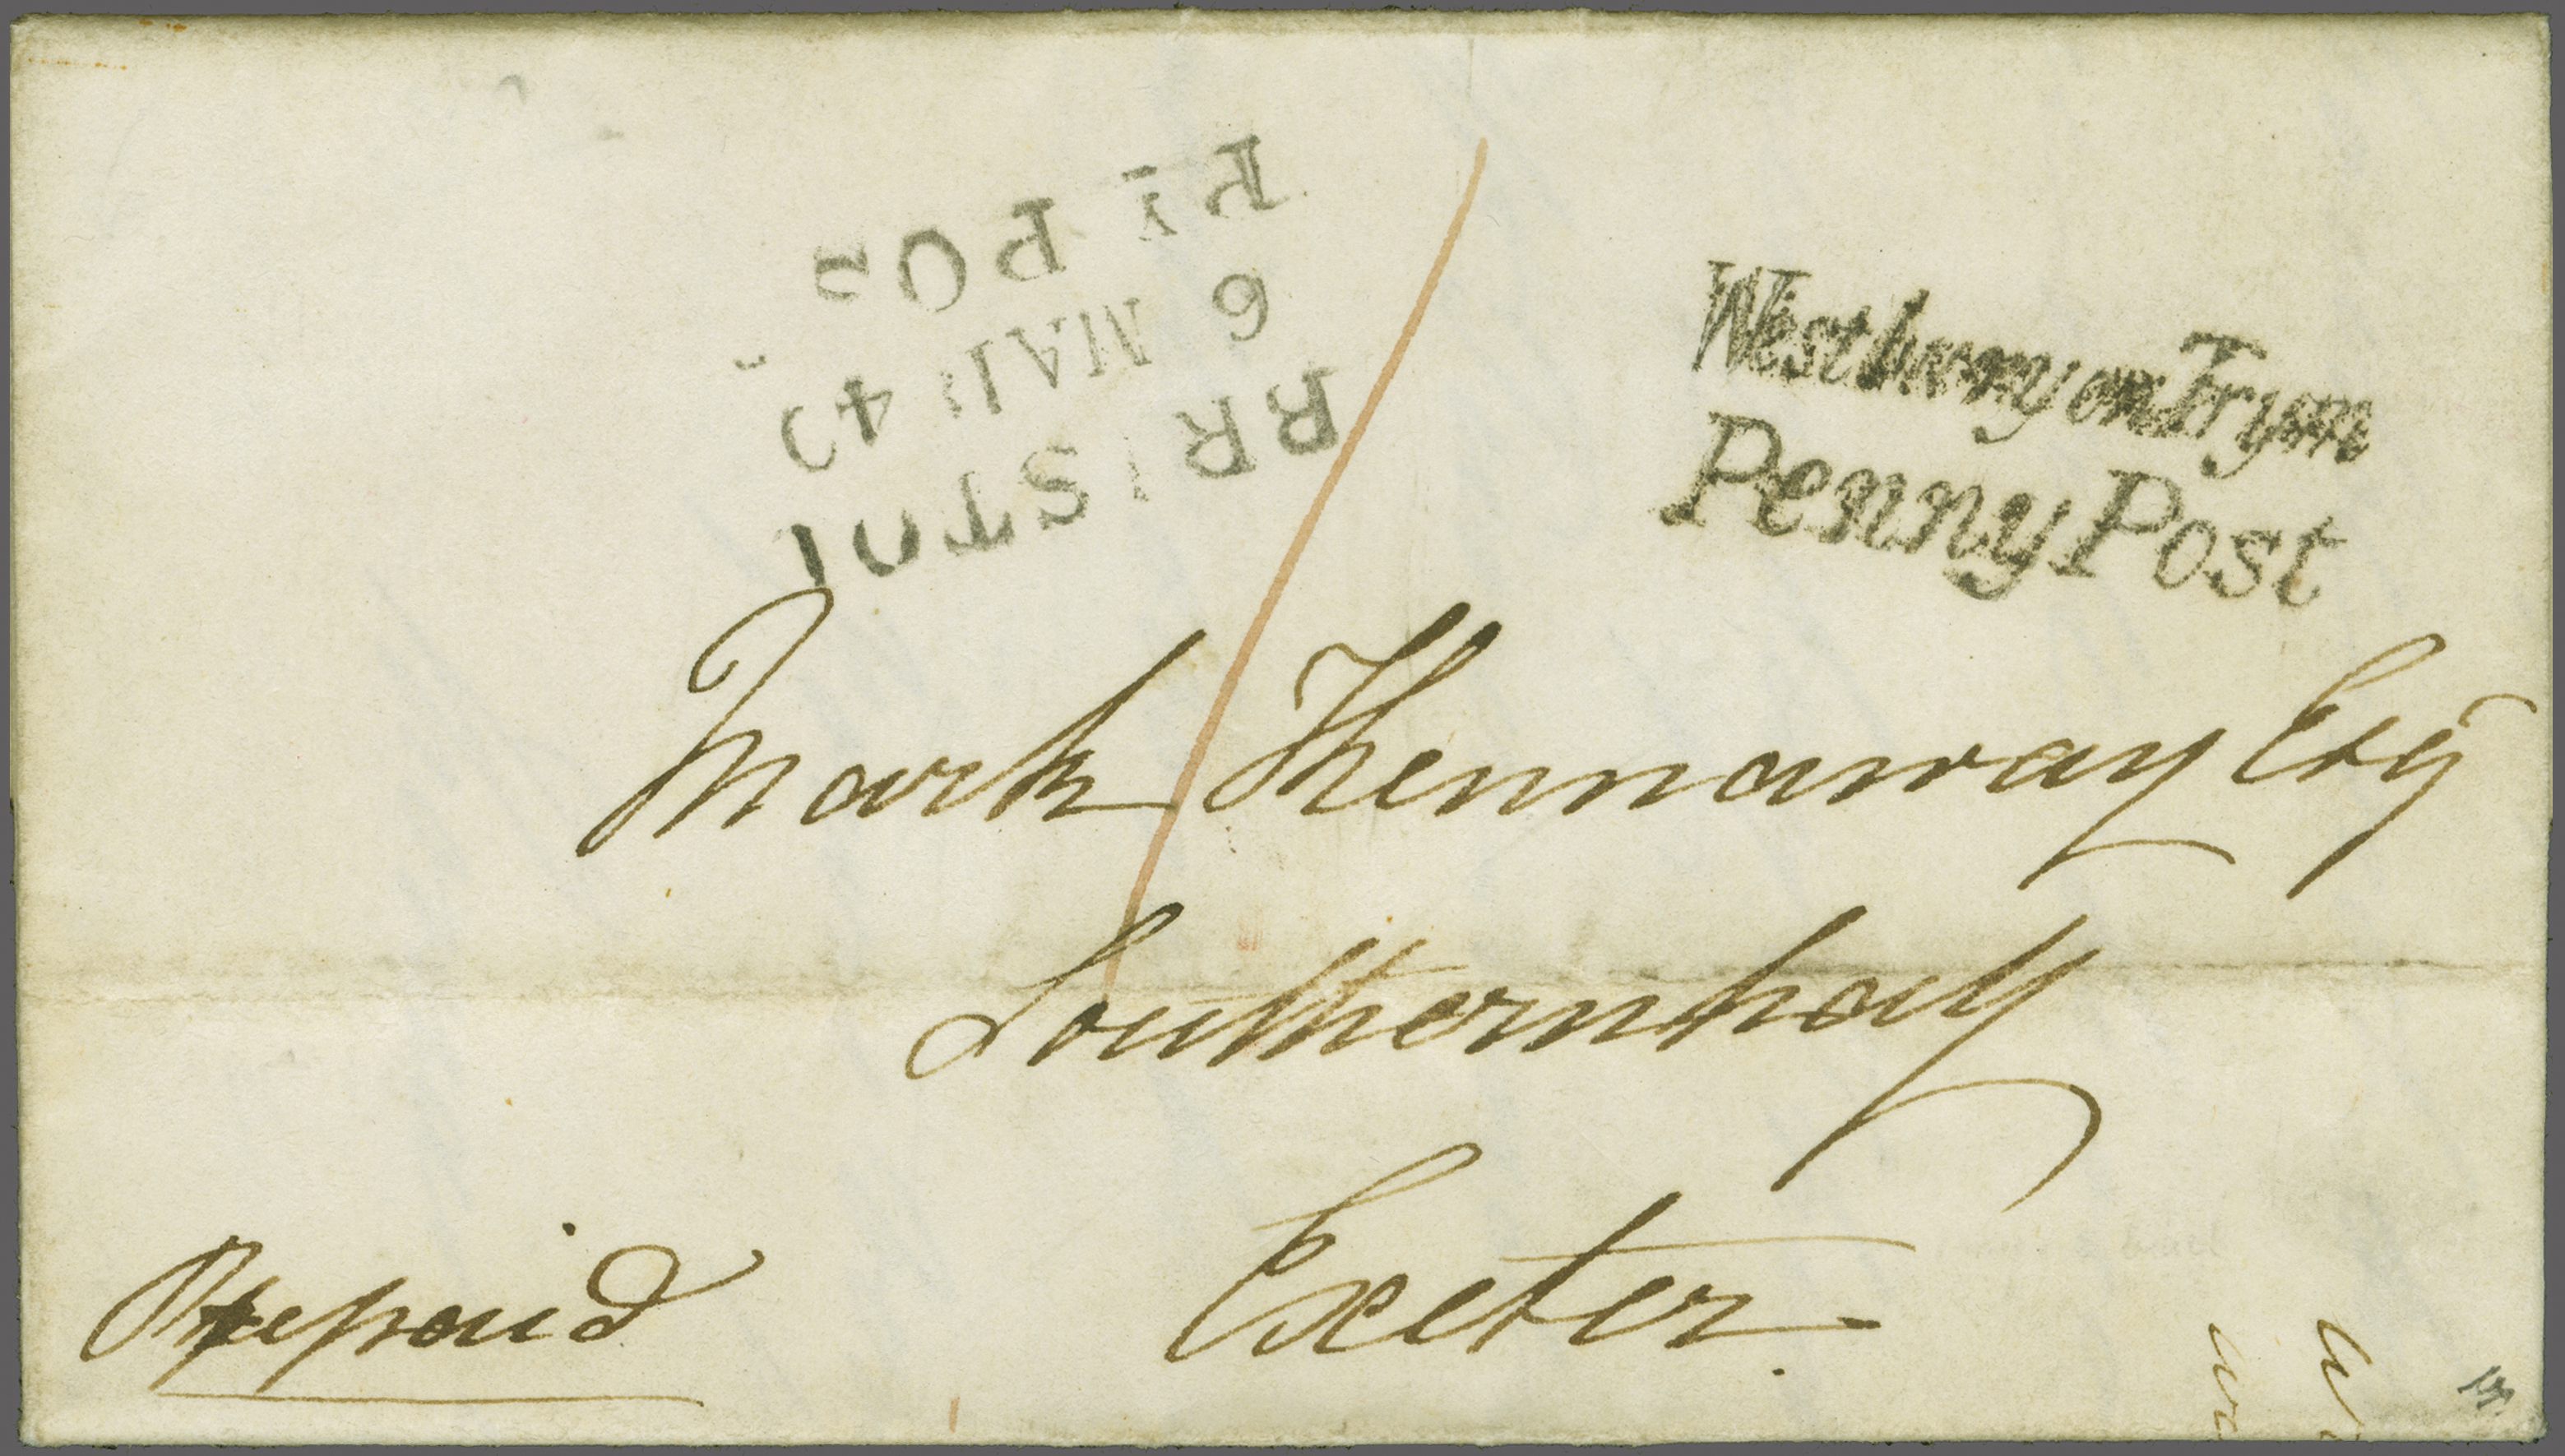 BRISTOL
6 MAR 40
PY POS
Westbury on Trym
Penny Post
Mark Kennaway Esq
Southernhay
Exeter.
Prepaid